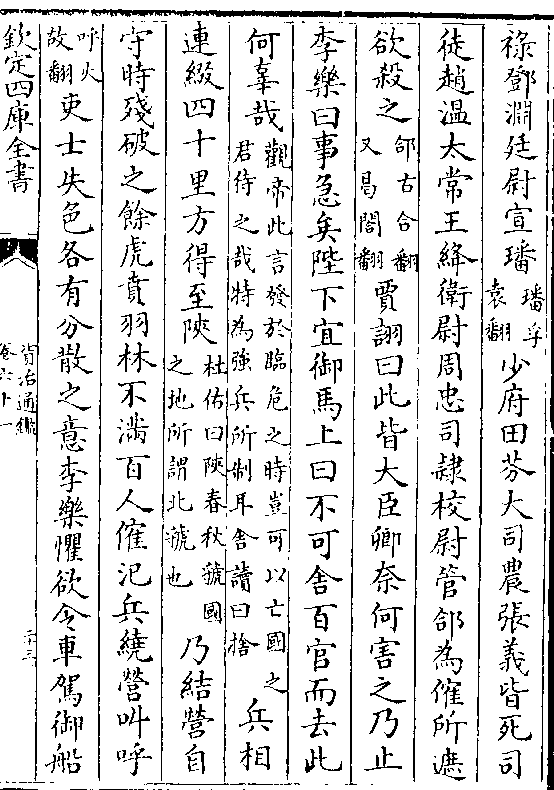 祿鄧淵廷尉宣璠璠孚袁翻少府田芬大司農張義皆死司
徒趙温太常王絳衛尉周忠司隷校尉管郃為傕所遮
欲殺之郃古合翻又曷閤翻賈詡曰此皆大臣卿奈何害之乃止
李樂曰事急矣陛下宜御馬上曰不可舍百官而去此
何辜哉觀帝此言發於臨危之時豈可以亡國之君待之哉特為強兵所制耳舍讀曰捨兵相
連綴四十里方得至陜杜佑曰陜春秋虢國之地所謂北虢也乃結營自
守時殘破之餘虎賁羽林不滿百人傕汜兵繞營叫呼
呼火故翻吏士失色各有分散之意李樂懼欲令車駕御船
欽定四庫全書
資治通鑑
卷六十一
二十三